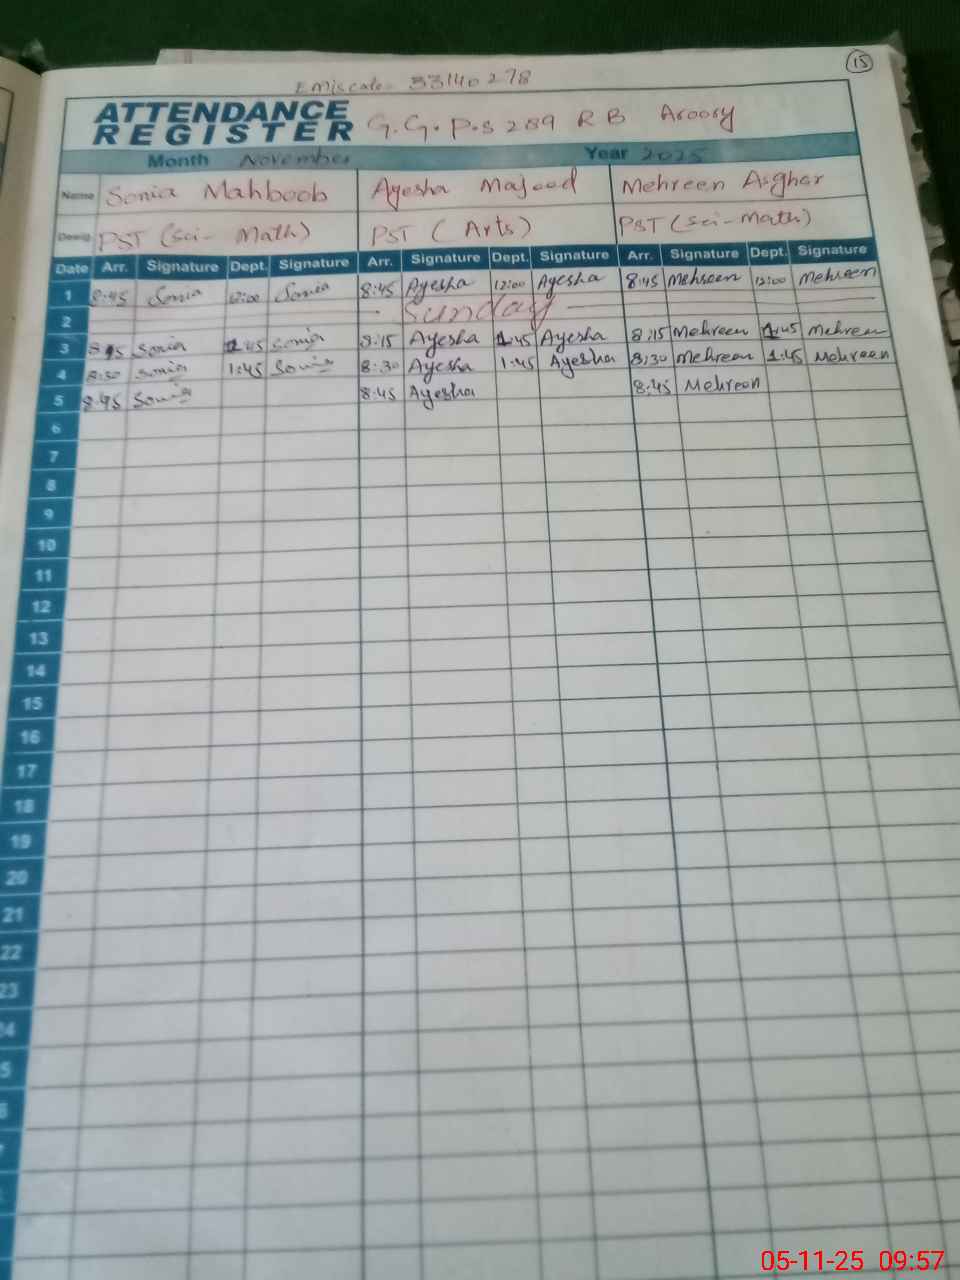 15
EMiscode- 33140278
ATTENDANCE REGISTER G.G.P.S 289 RB Aroory
Month November Year 2025
Name Sonia Mahboob Ayesha Majeed Mehreen Asghar
Desig. PST (Sci- Math) PST (Arts) PST (Sci-Math)
Date Arr. Signature Dept. Signature Arr. Signature Dept. Signature Arr. Signature Dept. Signature
1 8:45 Sonia 12:00 Sonia 8:45 Ayesha 12:00 Ayesha 8:45 Mehreen 12:00 Mehreen
2 Sunday
3 8:15 Sonia 1:45 Sonia 8:15 Ayesha 1:45 Ayesha 8:15 Mehreen 1:45 Mehreen
4 8:30 Sonia 1:45 Sonia 8:30 Ayesha 1:45 Ayesha 8:30 Mehreen 1:45 Mehreen
5 8:45 Sonia 8:45 Ayesha 8:45 Mehreen
6
7
8
9
10
11
12
13
14
15
16
17
18
19
20
21
22
23
4
5
6
7
05-11-25 09:57